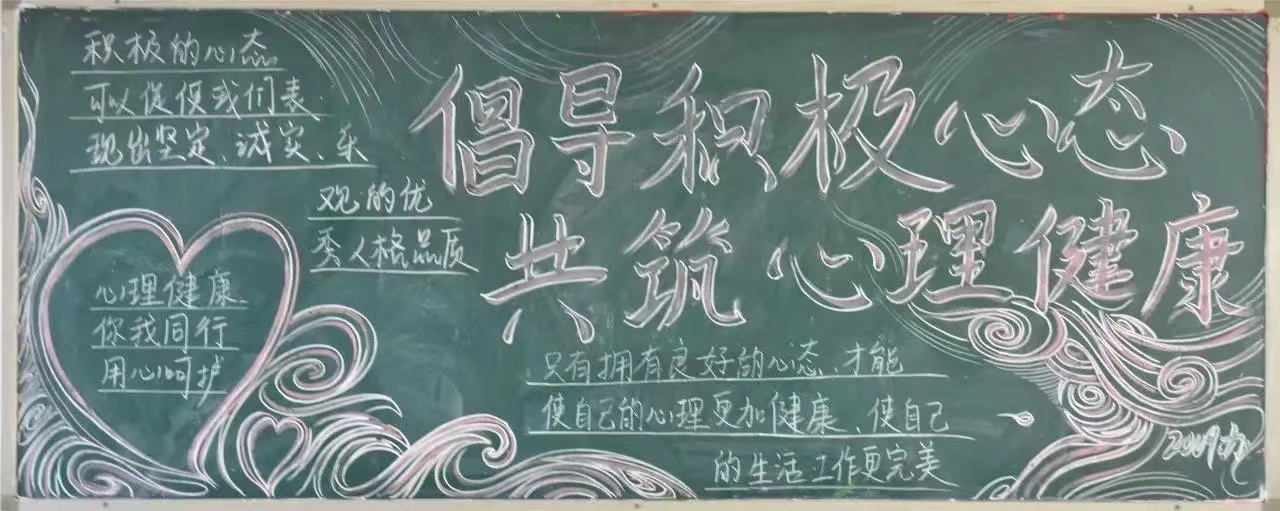 倡导积极心态
共筑心理健康
积极的心态
可以促使我们表
现出坚定、诚实、乐
观的优
秀人格品质
心理健康
你我同行
用心呵护
只有拥有良好的心态、才能
使自己的心理更加健康、使自己
的生活工作更完美